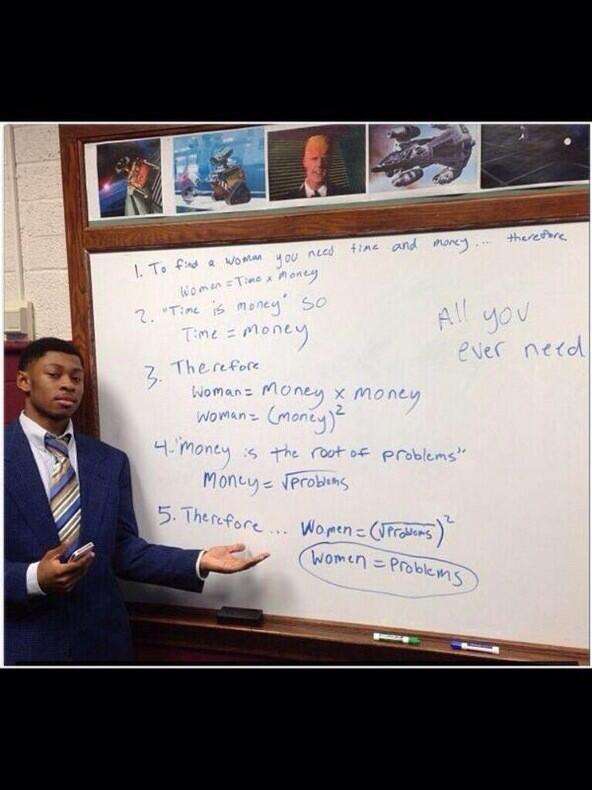 1. To find a woman you need time and money... therefore
Women = Time x Money
2. "Time is money" so
Time = Money
All you
ever need
3. Therefore
Woman = Money x Money
Woman = (money)²
4. "Money is the root of problems"
Money = √Problems
5. Therefore... Women = (√Problems)²
Women = Problems